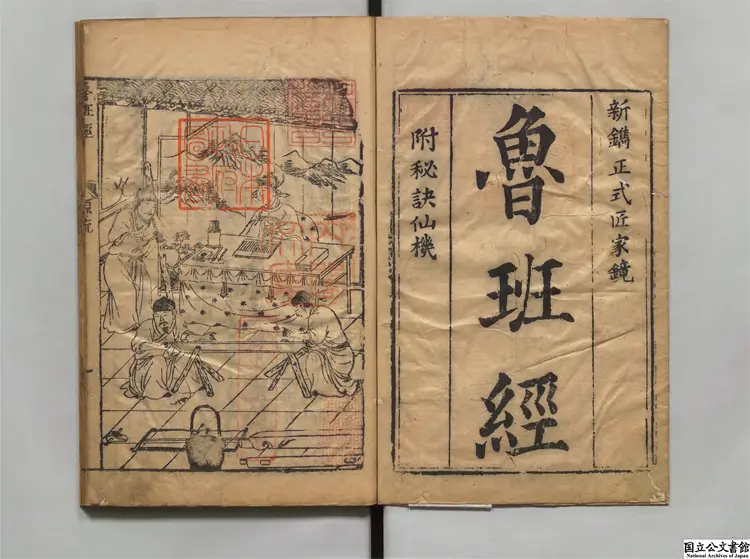 新鐫正式匠家鏡
魯班經
附秘訣仙機
魯班經
源流
国立公文書館
National Archives of Japan